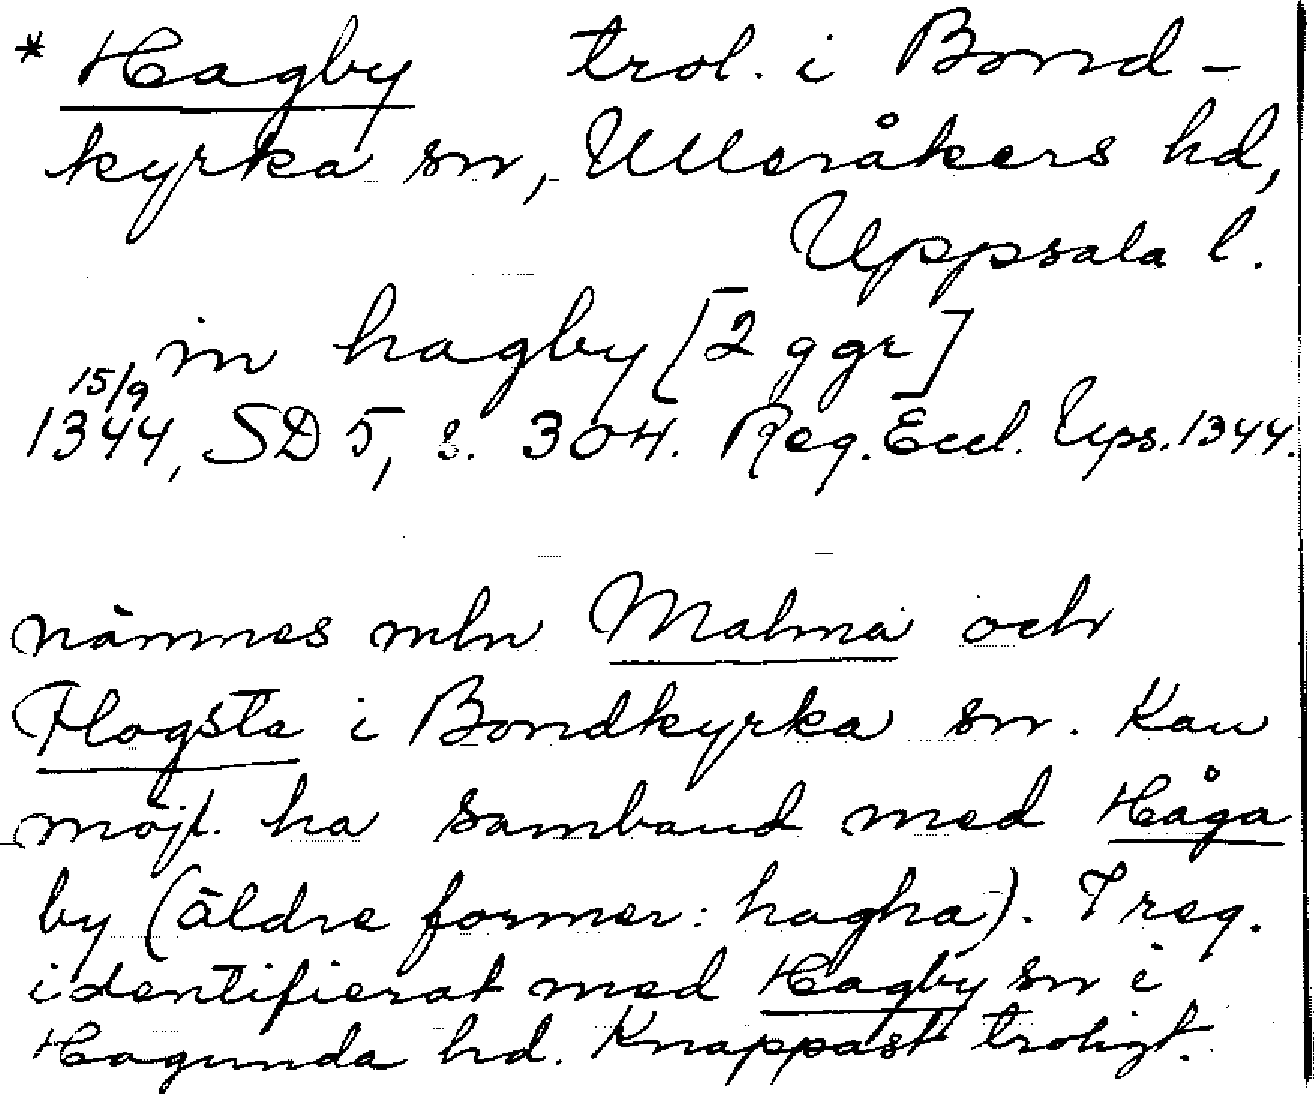 * Hagby trol. i Bond-
kyrka sn, Ulleråkers hd,
Uppsala l.
in hagby [2 ggr]
15/9
1344, SD 5, s. 304. Reg. Eccl. Ups. 1344.
nämnes mln Malma och
Flogsta i Bondkyrka sn. Kan
möjl. ha samband med Håga
by (äldre former: hagha). I reg.
identifierat med Hagby sn i
Hagunda hd. Knappast troligt.